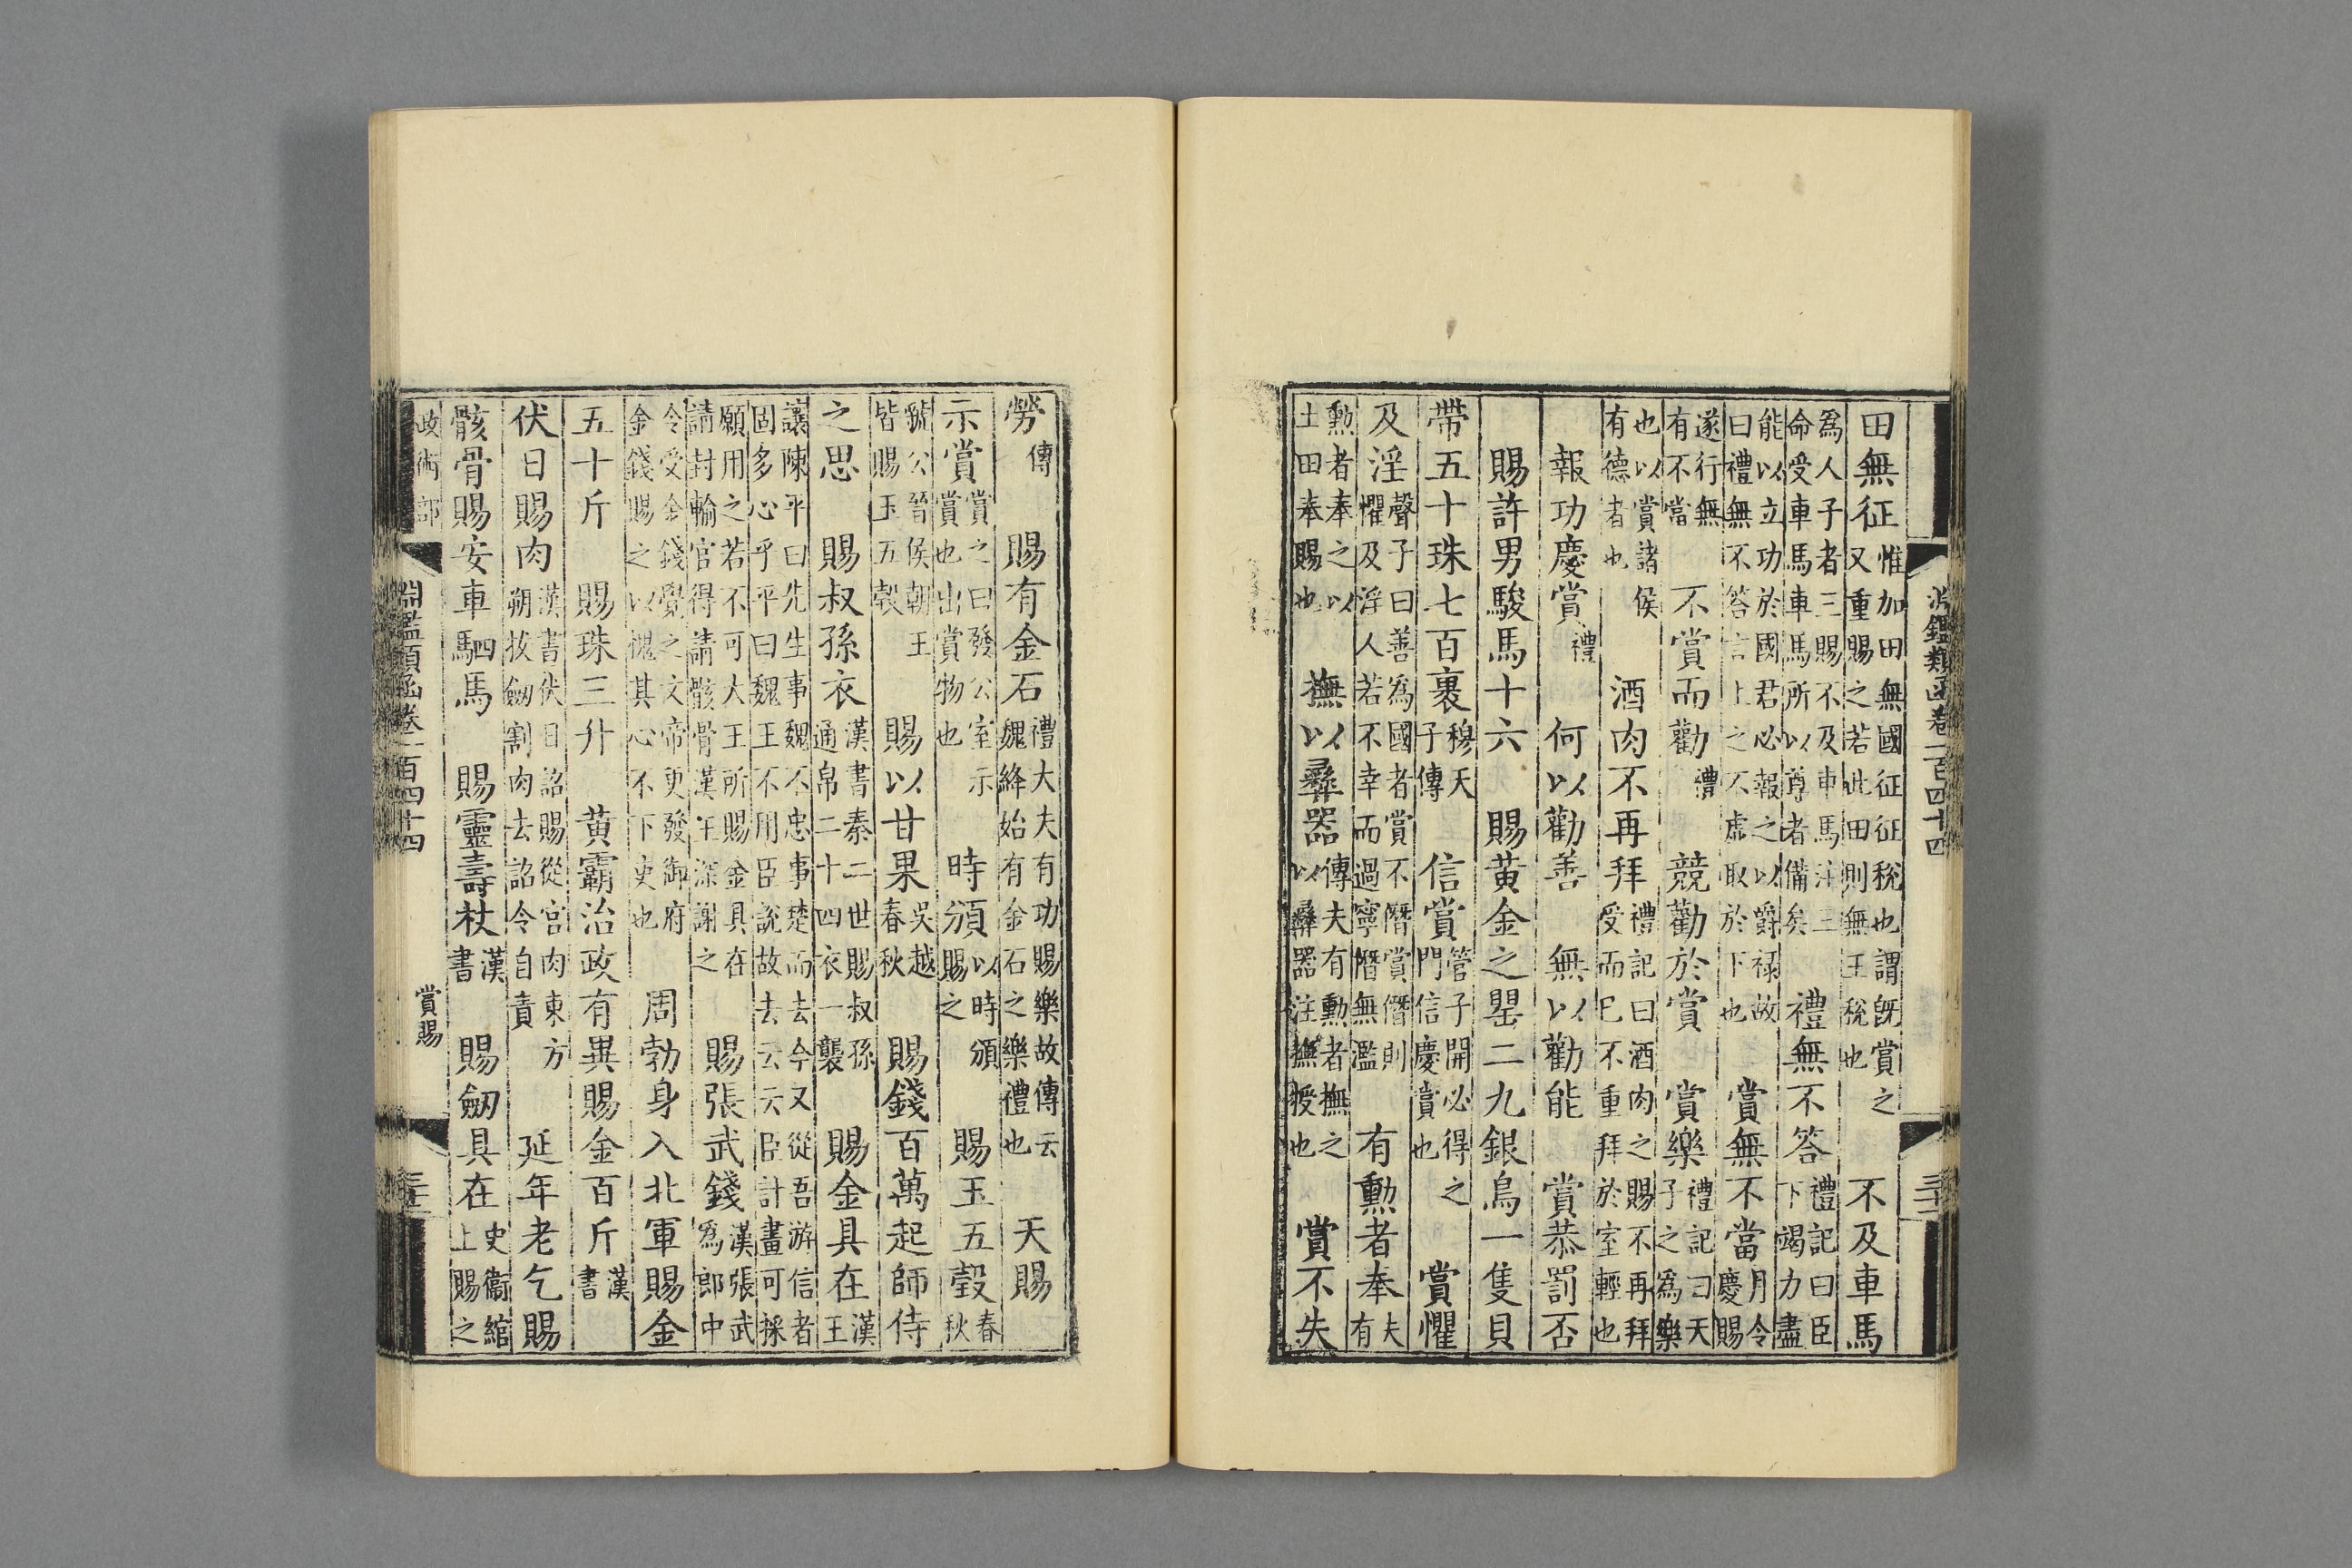 淵鑑類函卷一百四十四
田無征惟加田無國征征稅也謂旣賞之又重賜之若此田則無王稅也　不及車馬
爲人子者三賜不及車馬注三命受車馬車馬所以尊者備矣　禮無不答禮記曰臣下竭力盡
能以立功於國君必報之以爵祿故曰禮無不答言上之不虛取於下也　賞無不當月令慶賜
遂行無有不當　不賞而勸禮　競勸於賞　賞樂禮記曰天子之爲樂
也以賞諸侯有德者也　酒肉不再拜禮記曰酒肉之賜不再拜受而已不重拜於室輕也
報功慶賞禮　何以勸善　無以勸能　賞恭罰否
賜許男駿馬十六　賜黄金之罌二九銀鳥一隻貝
帶五十珠七百裹穆天子傳　信賞管子開必得之門信慶賞也　賞懼
及淫聲子曰善爲國者賞不僭賞僭則懼及淫人若不幸而過寧僭無濫　有勲者奉夫有
勲者奉之以土田奉賜也　撫以彝器傳夫有勲者撫之以彝器注撫授也　賞不失
勞傳　賜有金石禮大夫有功賜樂故傳云魏絳始有金石之樂禮也　天賜
示賞賞之曰發公室示賞也出賞物也　時頒以時頒賜之　賜玉五瑴春秋
虢公晉侯朝王皆賜玉五瑴　賜以甘果吳越春秋　賜錢百萬起師侍
之思　賜叔孫衣漢書秦二世賜叔孫通帛二十四衣一襲　賜金具在漢王
讓陳平曰先生事魏不忠事楚而去今又從吾游信者固多心乎平曰魏王不用臣說故去云云臣計畫可採
願用之若不可大王所賜金具在請封輸官得請骸骨漢王深謝之　賜張武錢漢張武爲郎中
令受金錢覺之文帝更發御府金錢賜之以愧其心不下吏也　周勃身入北軍賜金
五十斤　賜珠三升　黄霸治政有異賜金百斤漢書
伏日賜肉漢書伏日詔賜從官肉東方朔拔劔割肉去詔令自責　延年老乞賜
骸骨賜安車駟馬　賜靈壽杖漢書　賜劔具在史衞綰上賜之
政術部　淵鑑類函卷一百四十四　賞賜